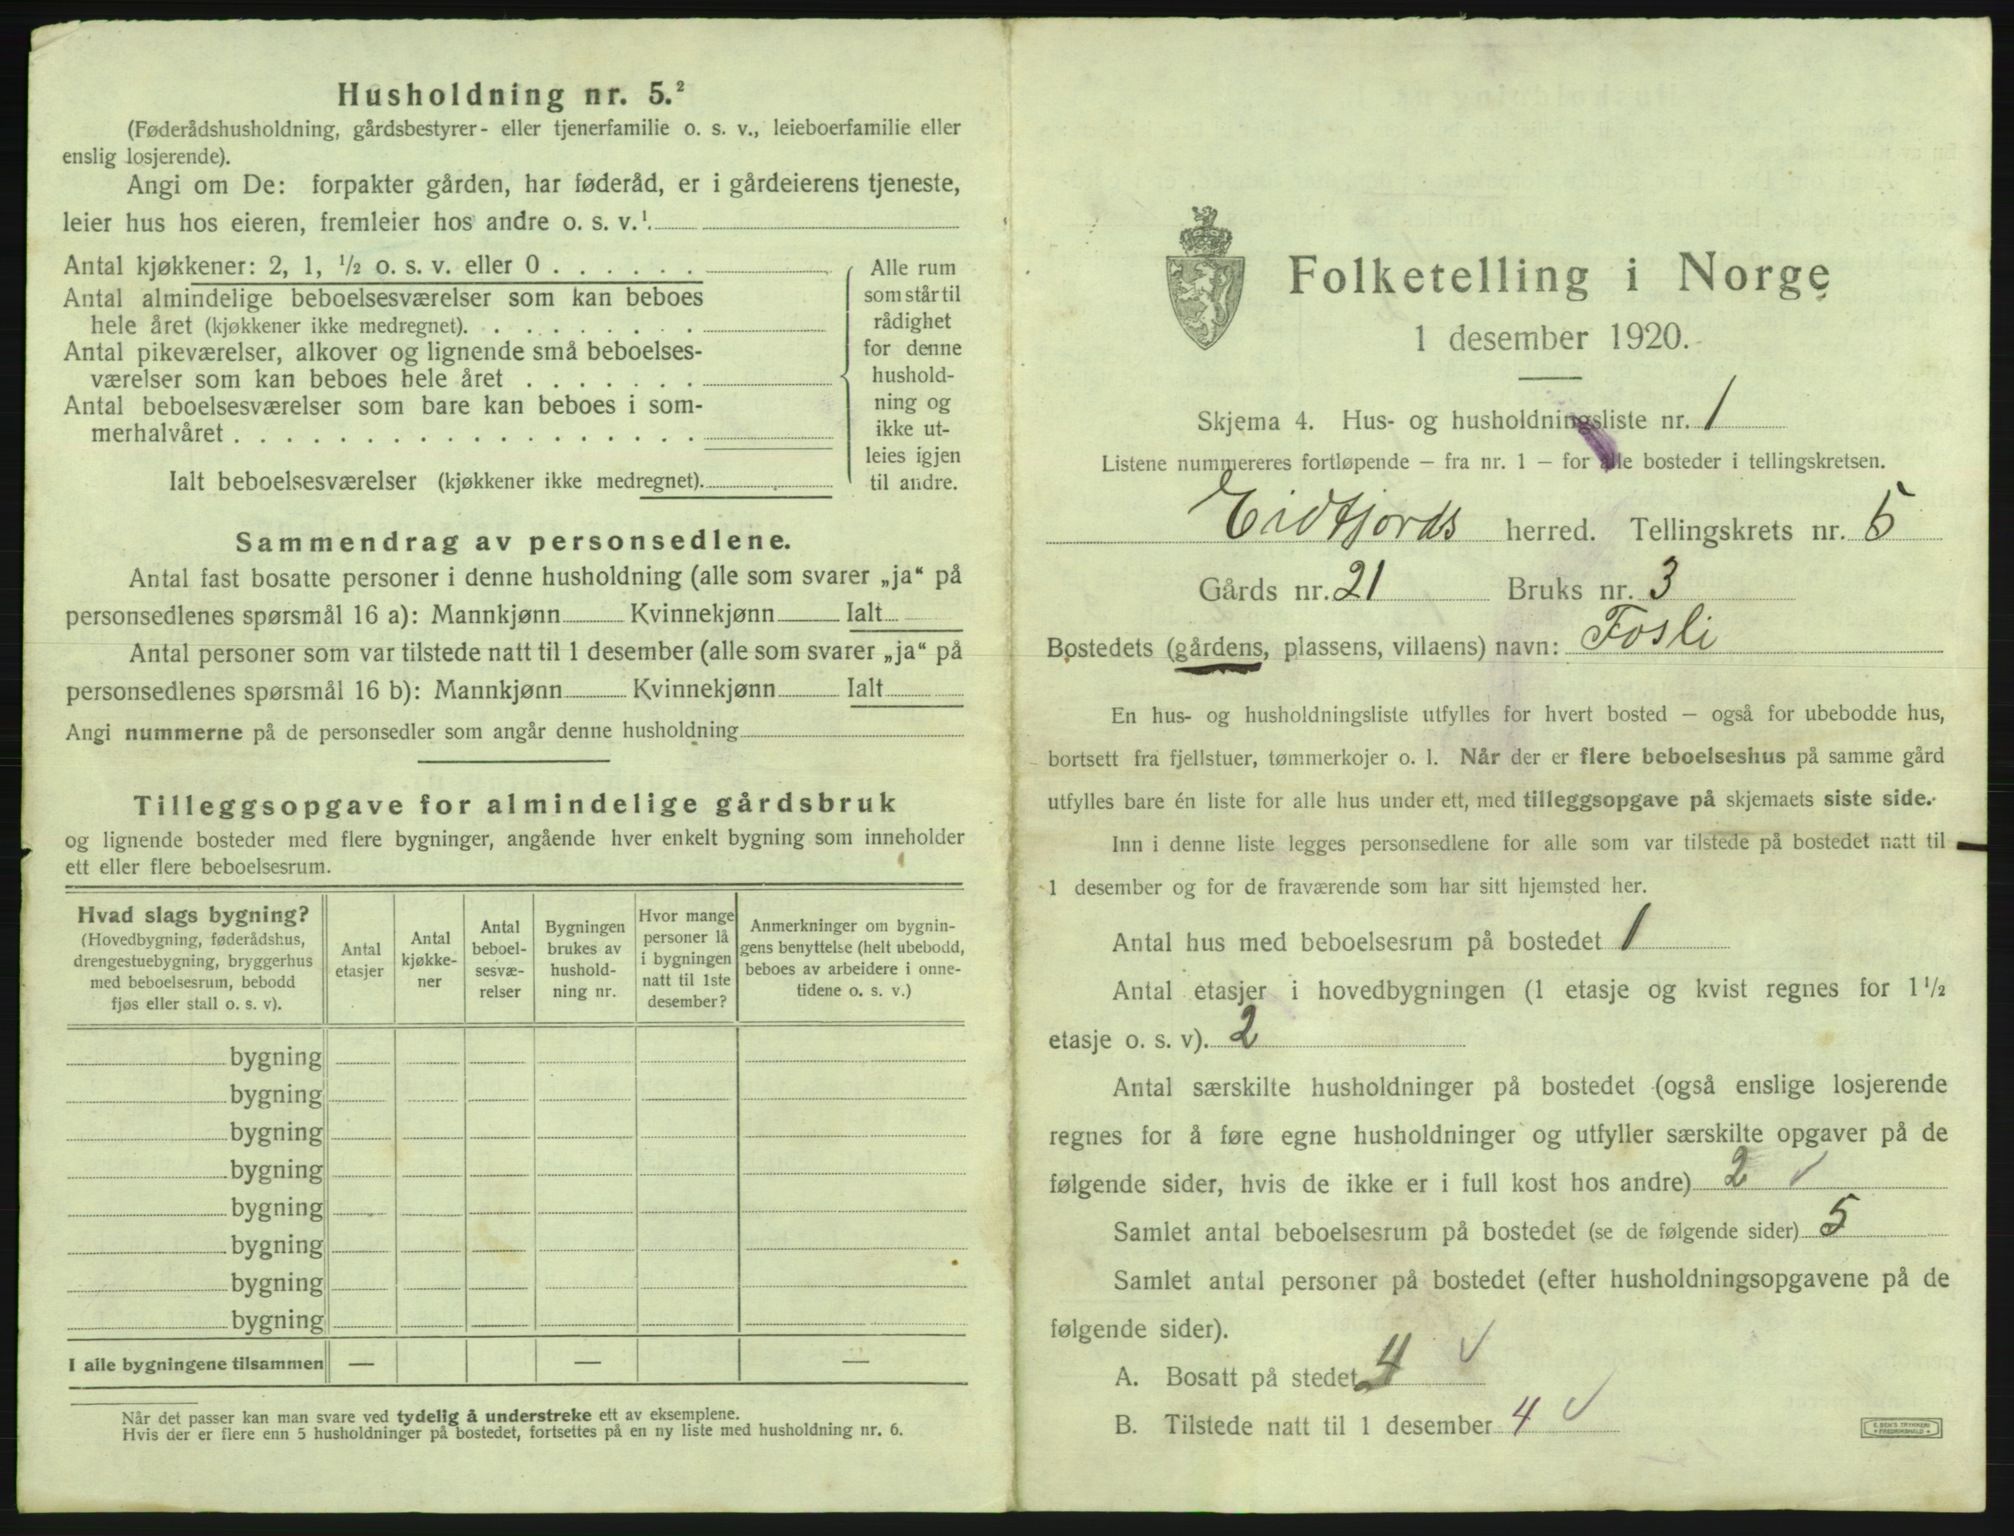 Husholdning nr. 5.²
(Føderådshusholdning, gårdsbestyrer- eller tjenerfamilie o. s. v., leieboerfamilie eller
enslig losjerende).
Angi om De: forpakter gården, har føderåd, er i gårdeierens tjeneste,
leier hus hos eieren, fremleier hos andre o. s. v.¹
Antal kjøkkener: 2, 1, ½ o. s. v. eller 0 . . . . . .
Antal almindelige beboelsesværelser som kan beboes
hele året (kjøkkener ikke medregnet). . . . . . . . .
Antal pikeværelser, alkover og lignende små beboelses-
værelser som kan beboes hele året . . . . . . .
Antal beboelsesværelser som bare kan beboes i som-
merhalvåret . . . . . . . . . . . . . . . . . .
Ialt beboelsesværelser (kjøkkener ikke medregnet).
Alle rum
som står til
rådighet
for denne
hushold-
ning og
ikke ut-
leies igjen
til andre.
Sammendrag av personsedlene.
Antal fast bosatte personer i denne husholdning (alle som svarer „ja“ på
personsedlenes spørsmål 16 a): Mannkjønn Kvinnekjønn Ialt
Antal personer som var tilstede natt til 1 desember (alle som svarer „ja“ på
personsedlenes spørsmål 16 b): Mannkjønn Kvinnekjønn Ialt
Angi nummerne på de personsedler som angår denne husholdning
Tilleggsopgave for almindelige gårdsbruk
og lignende bosteder med flere bygninger, angående hver enkelt bygning som inneholder
ett eller flere beboelsesrum.
Hvad slags bygning?
(Hovedbygning, føderådshus,
drengestuebygning, bryggerhus
med beboelsesrum, bebodd
fjøs eller stall o. s. v).
Antal
etasjer
Antal
kjøkke-
ner
Antal
beboel-
sesvæ-
relser
Bygningen
brukes av
hushold-
ning nr.
Hvor mange
personer lå
i bygningen
natt til 1ste
desember?
Anmerkninger om bygnin-
gens benyttelse (helt ubebodd,
beboes av arbeidere i onne-
tidene o. s. v.)
bygning
bygning
bygning
bygning
bygning
bygning
bygning
bygning
I alle bygningene tilsammen — — —
Når det passer kan man svare ved tydelig å understreke ett av eksemplene.
Hvis der er flere enn 5 husholdninger på bostedet, fortsettes på en ny liste med husholdning nr. 6.
Folketelling i Norge
1 desember 1920.
Skjema 4. Hus- og husholdningsliste nr. 1
Listene nummereres fortløpende — fra nr. 1 — for alle bosteder i tellingskretsen.
Eidfjords herred. Tellingskrets nr. 5
Gårds nr. 21 Bruks nr. 3
Bostedets (gårdens, plassens, villaens) navn: Fosli
En hus- og husholdningsliste utfylles for hvert bosted — også for ubebodde hus,
bortsett fra fjellstuer, tømmerkojer o. l. Når der er flere beboelseshus på samme gård
utfylles bare én liste for alle hus under ett, med tilleggsopgave på skjemaets siste side.
Inn i denne liste legges personsedlene for alle som var tilstede på bostedet natt til
1 desember og for de fraværende som har sitt hjemsted her.
Antal hus med beboelsesrum på bostedet 1
Antal etasjer i hovedbygningen (1 etasje og kvist regnes for 1½
etasje o. s. v). 2
Antal særskilte husholdninger på bostedet (også enslige losjerende
regnes for å føre egne husholdninger og utfyller særskilte opgaver på de
følgende sider, hvis de ikke er i full kost hos andre) 2 ✓
Samlet antal beboelsesrum på bostedet (se de følgende sider) 5
Samlet antal personer på bostedet (efter husholdningsopgavene på de
følgende sider).
A. Bosatt på stedet 4 ✓
B. Tilstede natt til 1 desember 4 ✓